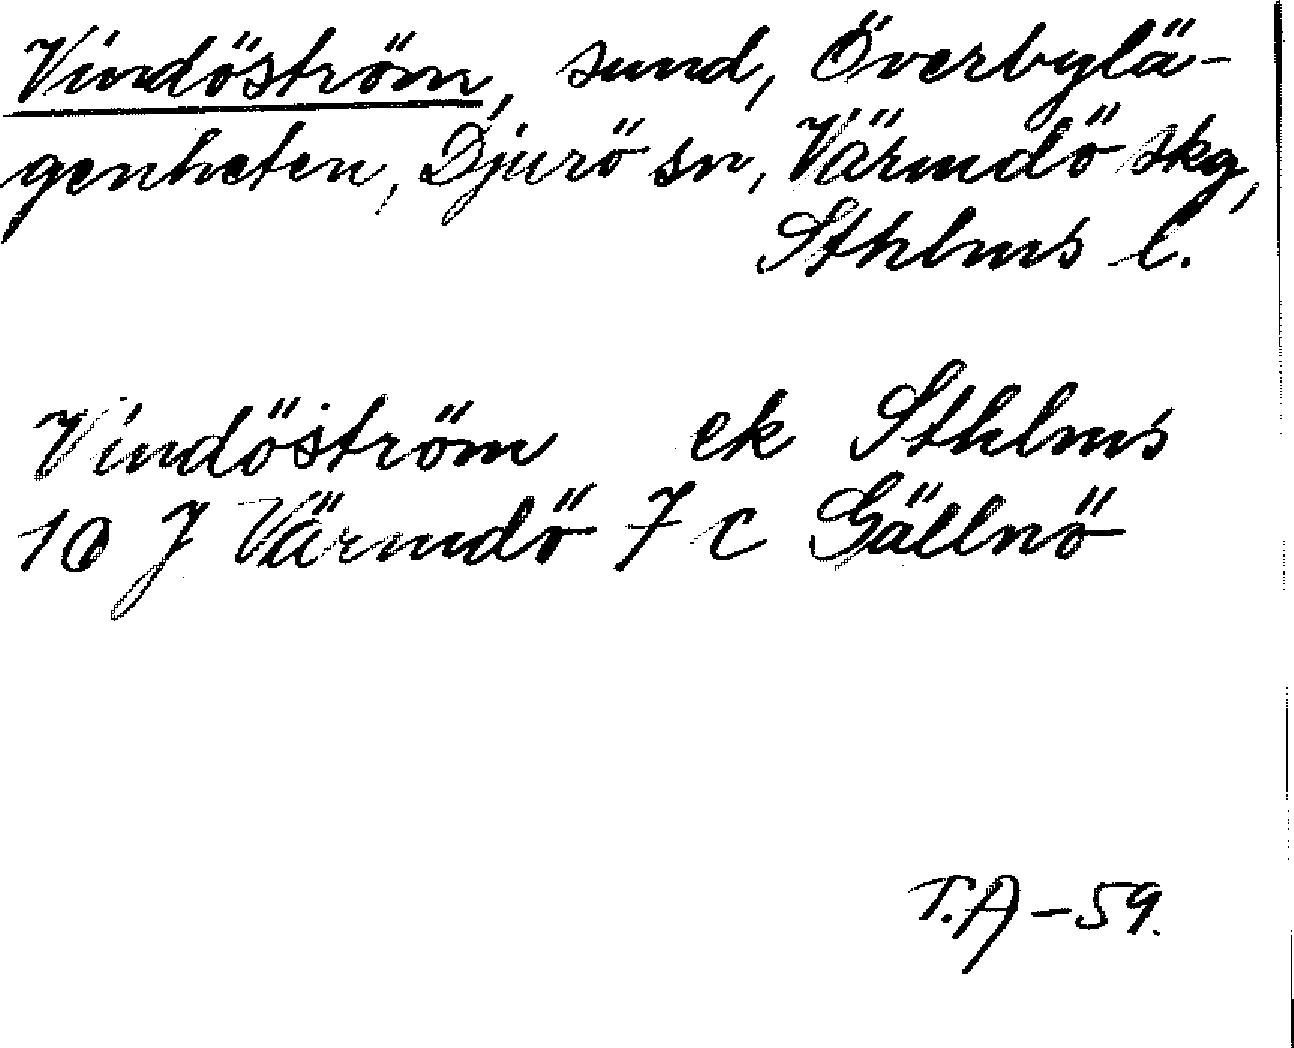 Vindöström, sund, Överbylä-
genheten, Djurö sn, Värmdö skg,
Sthlms l.
Vindöström ek Sthlms
10 J Värmdö 7 c Gällnö
T.A-59.